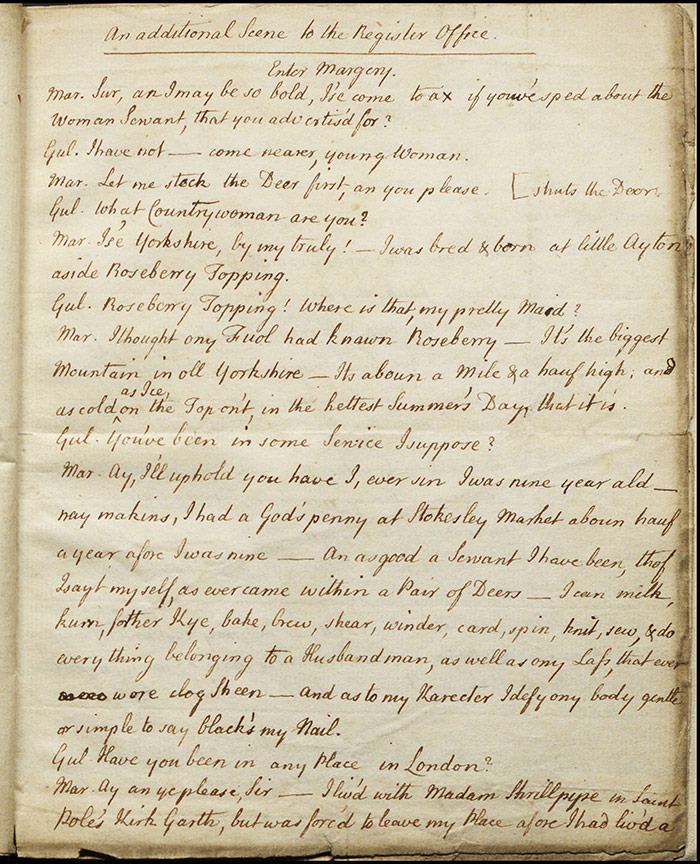 An additional Scene to the Register Office.
Enter Margery.
Mar. Sur, an I may be so bold, I'se come to ax if you've sped about the
Woman Servant, that you advertis'd for?
Gul. I have not — come nearer, young Woman.
Mar. Let me steck the Deer first, an you please. [shuts the Deer.
Gul. What Countrywoman are you?
Mar. I'se Yorkshire, by my truly! — I was bred & born at little Ayton
aside Roseberry Topping.
Gul. Roseberry Topping! Where is that, my pretty Maid?
Mar. I thought ony Fuol had knawn Roseberry — It's the biggest
Mountain in oll Yorkshire — Its aboun a Mile & a hauf high; and
as cold as Ice, on the Top on't, in the hettest Summer's Day, that it is.
Gul. You've been in some Service I suppose?
Mar. Ay, I'll uphold you have I, ever sin I was nine year ald —
nay makins, I had a God's penny at Stokesley Market aboun hauf
a year afore I was nine — An as good a Servant I have been, thof
I say't myself, as ever came within a Pair of Deers — I can milk,
kurn, fother Kye, bake, brew, shear, winder, card, spin, knit, sew, & do
every thing belonging to a Husbandman, as well as ony Lass, that ever
wore clog Sheen — And as to my Karecter I defy ony body gentle
or simple to say black's my Nail.
Gul Have you been in any Place in London?
Mar. Ay an ye please, Sir — I liv'd with Madam Shrillpipe in Saint
Pole's Kirk Garth, but was forc'd to leave my Place afore I had liv'd a